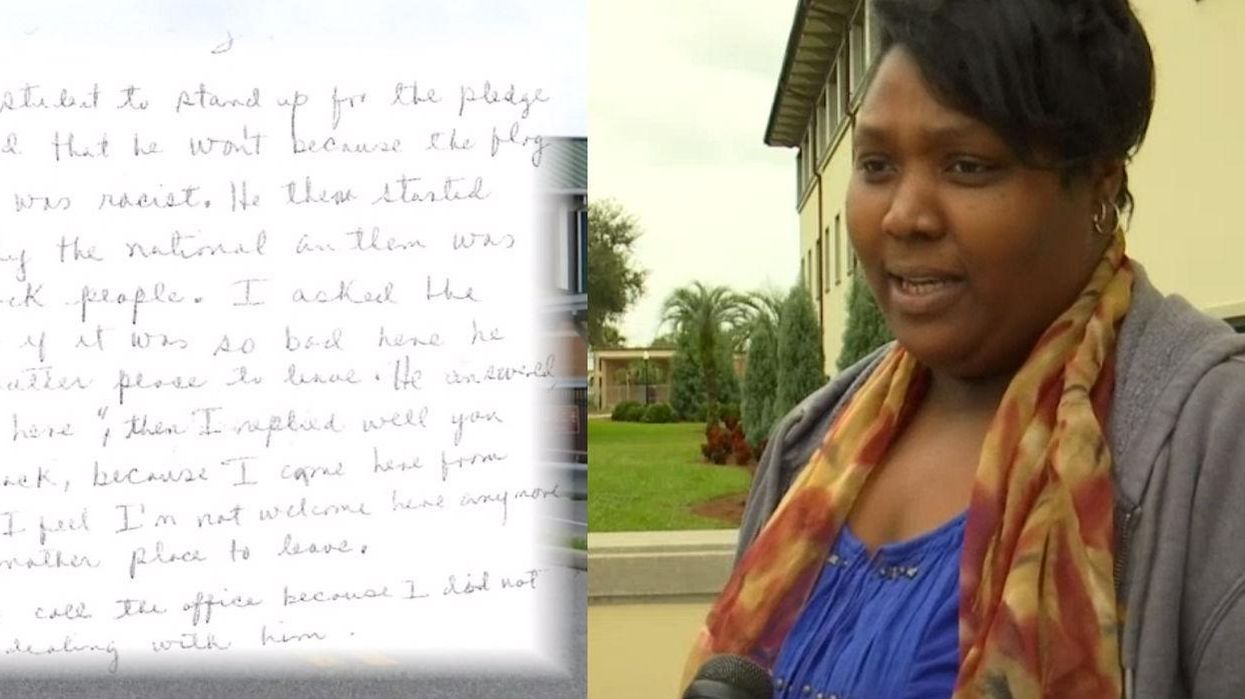 student to stand up for the pledge
d that he won't because the flag
was racist. He then started
the national anthem was
ck people. I asked the
if it was so bad here he
nother place to leave. He answered,
here", then I replied well you
ack, because I came here from
I feel I'm not welcome here anymore
nother place to leave.
call the office because I did not
dealing with him.